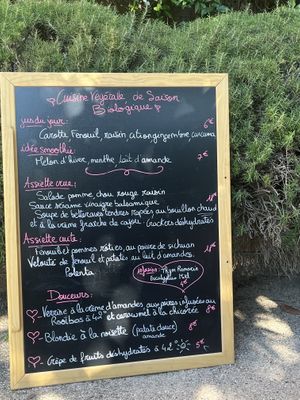 Cuisine Végétale de Saison
Biologique
jus du jour:
Carotte Fenouil, raisin, citron, gingembre, curcuma
6€
idée smoothie:
Melon d'hiver, menthe, lait d'amande
7€
Assiette crue:
Salade pomme chou rouge raisin
Sauce sésame vinaigre balsamique
Soupe de betteraves tendres râpées au bouillon chaud
et à la crème fraîche de cajou. crackers déshydratés
Assiette cuite:
Fenouil et pommes rôties, au poivre de sichuan
Velouté de fenouil et patate au lait d'amandes.
Polenta
infusion: Thym Romarin
Eucalyptus Miel
Douceurs:
- Verrine à la crème d'amandes aux poires infusées au
Rooibos à 42° et caramel à la chicorée
8€
- Blondie à la noisette (patate douce)
amande
- Crêpe de fruits déshydratés à 42°